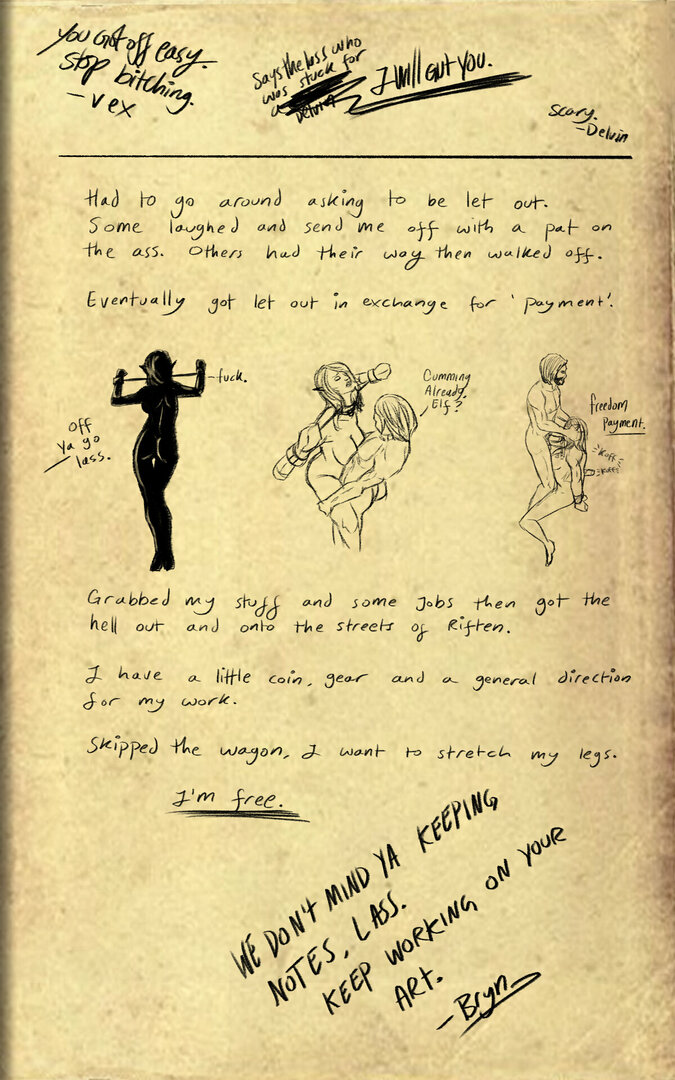 You Got off easy.
Stop bitching.
- Vex
Says the lass who
was stuck for
a
Delvin
I will gut you.
Scary.
- Delvin
Had to go around asking to be let out.
Some laughed and send me off with a pat on
the ass. Others had their way then walked off.
Eventually got let out in exchange for 'payment'.
fuck.
Off
ya go
lass.
Cumming
Already,
Elf?
freedom
Payment.
Koff
Koff
Grabbed my stuff and some Jobs then got the
hell out and onto the streets of Riften.
I have a little coin, gear and a general direction
for my work.
Skipped the wagon, I want to stretch my legs.
I'm free.
WE DON'T MIND YA KEEPING
NOTES, LASS.
KEEP WORKING ON YOUR
ART.
- Bryn